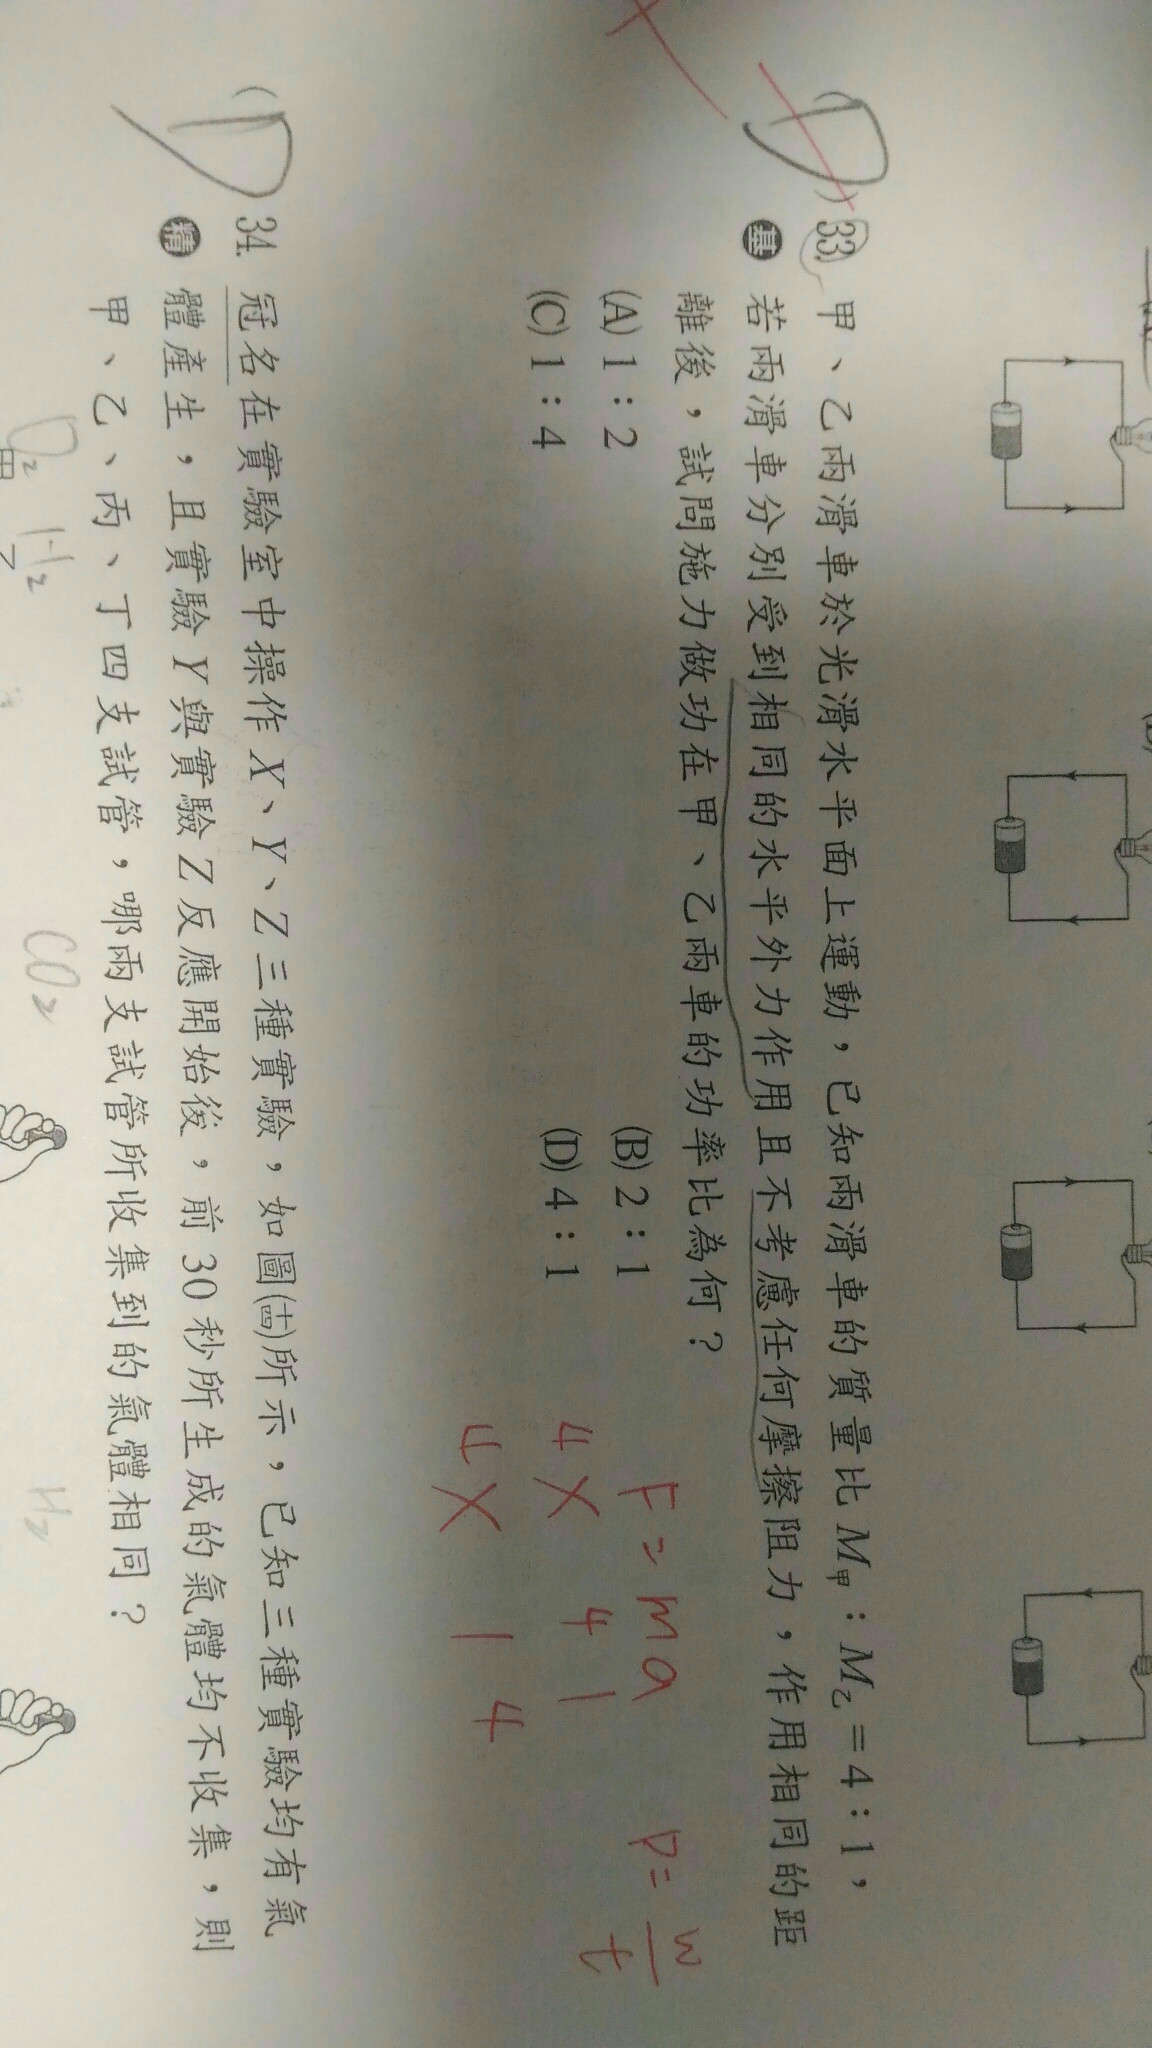 (D) 33. 甲、乙兩滑車於光滑水平面上運動，已知兩滑車的質量比 M甲：M乙＝4：1，
基 若兩滑車分別受到相同的水平外力作用且不考慮任何摩擦阻力，作用相同的距
離後，試問施力做功在甲、乙兩車的功率比為何？
(A) 1：2 (B) 2：1
(C) 1：4 (D) 4：1
F=ma
4 X 4 1
4 X 1 4
P= W/t
(D) 34. 冠名在實驗室中操作 X、Y、Z 三種實驗，如圖(十四)所示，已知三種實驗均有氣
精 體產生，且實驗 Y 與實驗 Z 反應開始後，前 30 秒所生成的氣體均不收集，則
甲、乙、丙、丁四支試管，哪兩支試管所收集到的氣體相同？
O2 H2 CO2 H2